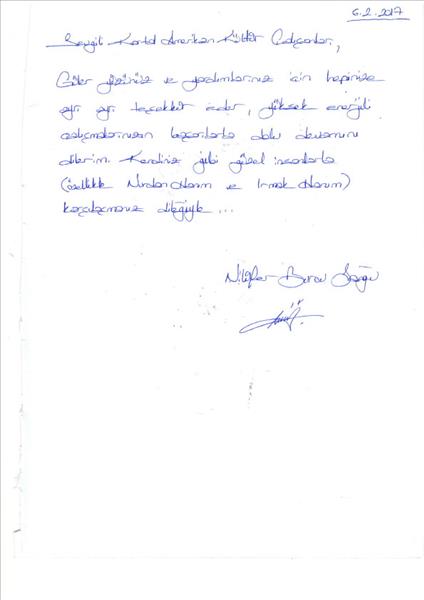 6.2.2017
Sevgili Kartal Amerikan Kültür Çalışanları,
Güler yüzünüz ve yardımlarınız için hepinize
ayrı ayrı teşekkür eder, yüksek enerjili
çalışmalarınızın başarılarla dolu devamını
dilerim. Kendiniz gibi güzel insanlarla
(özellikle Nurdan Hanım ve Irmak Hanım)
karşılaşmanız dileğiyle...
Nilüfer Burcu